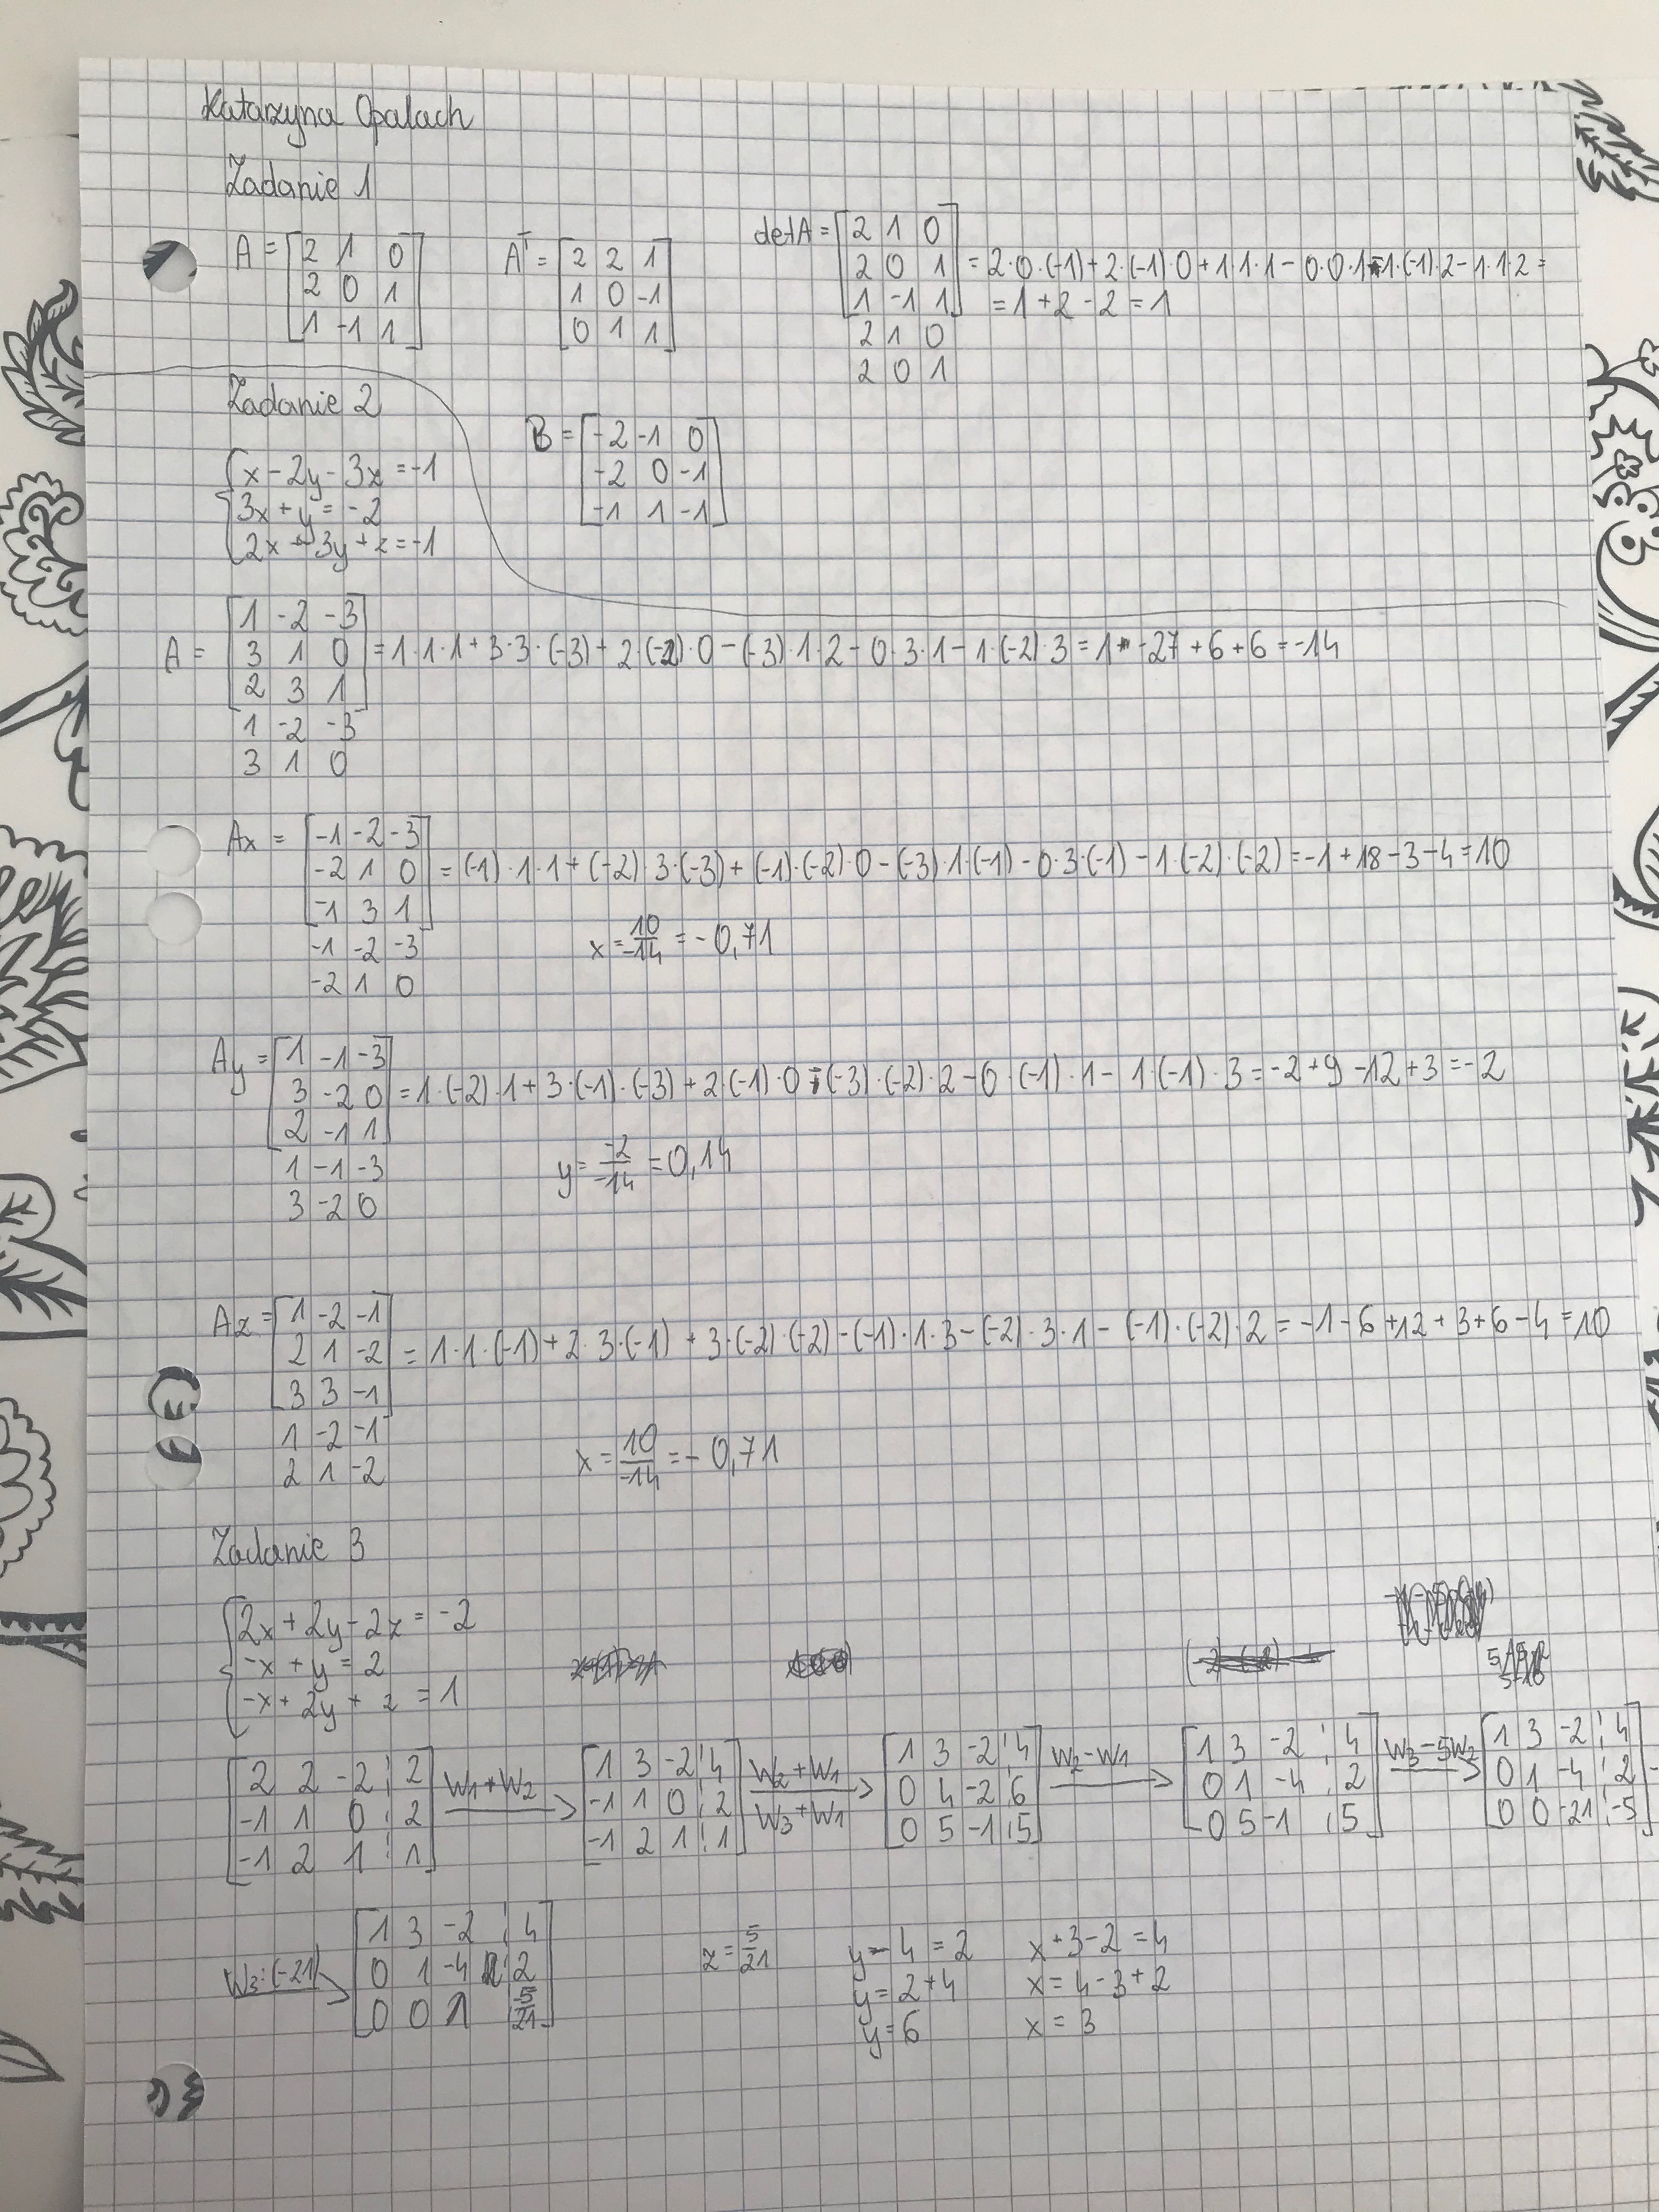 Katarzyna Opalach
Zadanie 1
A = [2 1 0
2 0 1
1 -1 1]
A^T = [2 2 1
1 0 -1
0 1 1]
detA = [2 1 0
2 0 1
1 -1 1]
2 1 0
2 0 1
= 2·0·(-1)+2·(-1)·0+1·1·1-0·0·1-1·(-1)·2-1·1·2=
= 1+2-2=1
B = [-2 -1 0
-2 0 -1
-1 1 -1]
Zadanie 2
{x-2y-3z=-1
3x+y=-2
2x+3y+z=-1
A = [1 -2 -3
3 1 0
2 3 1]
1 -2 -3
3 1 0
=1·1·1+3·3·(-3)+2·(-2)·0-(-3)·1·2-0·3·1-1·(-2)·3=1-27+6+6=-14
Ax = [-1 -2 -3
-2 1 0
-1 3 1]
-1 -2 -3
-2 1 0
=(-1)·1·1+(-2)·3·(-3)+(-1)·(-2)·0-(-3)·1·(-1)-0·3·(-1)-1·(-2)·(-2)=-1+18-3-4=10
x=10/-14=-0,71
Ay = [1 -1 -3
3 -2 0
2 -1 1]
1 -1 -3
3 -2 0
=1·(-2)·1+3·(-1)·(-3)+2·(-1)·0-(-3)·(-2)·2-0·(-1)·1-1·(-1)·3=-2+9-12+3=-2
y=-2/-14=0,14
Az = [1 -2 -1
2 1 -2
3 3 -1]
1 -2 -1
2 1 -2
=1·1·(-1)+2·3·(-1)+3·(-2)·(-2)-(-1)·1·3-(-2)·3·1-(-1)·(-2)·2=-1-6+12+3+6-4=10
x=10/-14=-0,71
Zadanie 3
{2x+2y-2z=-2
-x+y=2
-x+2y+z=1
[2 2 -2 ¦ 2
-1 1 0 ¦ 2
-1 2 1 ¦ 1]
W1+W2
[1 3 -2 ¦ 4
-1 1 0 ¦ 2
-1 2 1 ¦ 1]
W2+W1
W3+W1
[1 3 -2 ¦ 4
0 4 -2 ¦ 6
0 5 -1 ¦ 5]
W2-W1
[1 3 -2 ¦ 4
0 1 -4 ¦ 2
0 5 -1 ¦ 5]
W3-5W2
[1 3 -2 ¦ 4
0 1 -4 ¦ 2
0 0 -21 ¦ -5]
W3:(-21)
[1 3 -2 ¦ 4
0 1 -4 ¦ 2
0 0 1 ¦ 5/21]
z=5/21
y-4=2
y=2+4
y=6
x+3-2=4
x=4-3+2
x=3